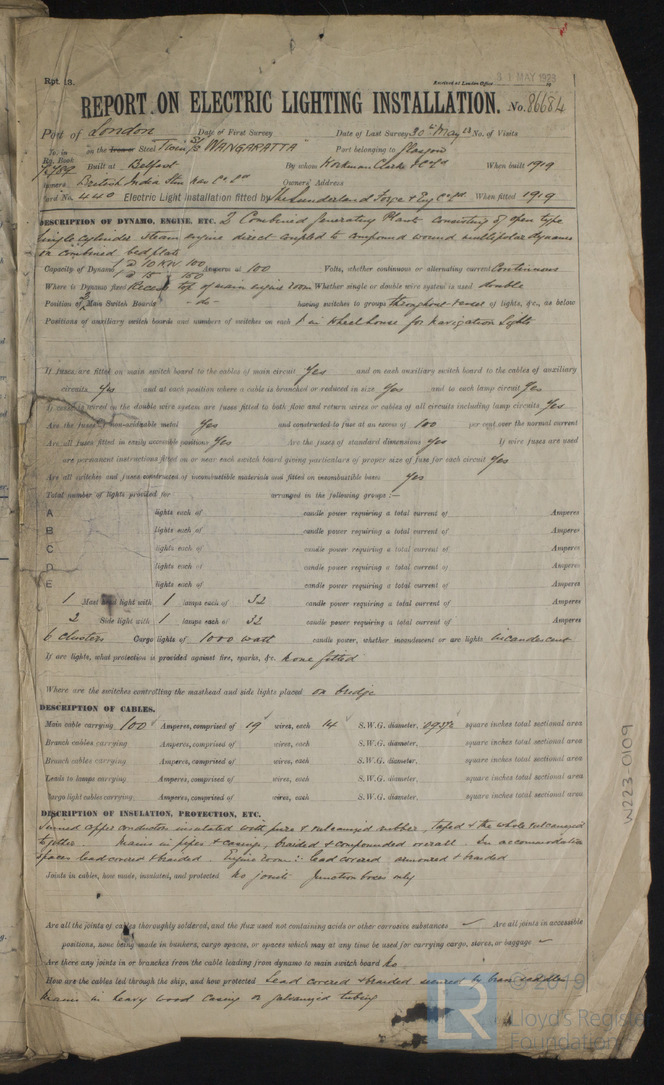 Rpt. 13.
Received at London Office 31 MAY 1923
REPORT ON ELECTRIC LIGHTING INSTALLATION. No. 86684
Port of London Date of First Survey Date of Last Survey 30th May 23 No. of Visits
No. in Reg. Book on the Iron or Steel Twin Sc "WANGARATTA" Port belonging to Glasgow
Built at Belfast By whom Workman Clarke & Co Ld When built 1919
Owners British India Stm Nav Co Ld Owners' Address
Yard No. 440 Electric Light Installation fitted by The Sunderland Forge & Eng Co Ld When fitted 1919
DESCRIPTION OF DYNAMO, ENGINE, ETC. 2 Combined Generating Plants consisting of open type
single cylinder steam engine direct coupled to compound wound multipolar dynamos
on combined bedplate
Capacity of Dynamo 1 @ 10 KW 100 Amperes at 100 Volts, whether continuous or alternating current Continuous
1 @ 15 " 150
Where is Dynamo fixed Recess top of main engine room Whether single or double wire system is used double
Position of Main Switch Boards -do- having switches to groups throughout vessel of lights, &c., as below
Positions of auxiliary switch boards and numbers of switches on each 1 in Wheelhouse for Navigation Lights
If fuses are fitted on main switch board to the cables of main circuit Yes and on each auxiliary switch board to the cables of auxiliary
circuits Yes and at each position where a cable is branched or reduced in size Yes and to each lamp circuit Yes
If vessel is wired on the double wire system are fuses fitted to both flow and return wires or cables of all circuits including lamp circuits Yes
Are the fuses of non-oxidizable metal Yes and constructed to fuse at an excess of 100 per cent over the normal current
Are all fuses fitted in easily accessible positions Yes Are the fuses of standard dimensions Yes If wire fuses are used
are permanent instructions fitted on or near each switch board giving particulars of proper size of fuse for each circuit Yes
Are all switches and fuses constructed of incombustible materials and fitted on incombustible bases Yes
Total number of lights provided for arranged in the following groups :—
A lights each of candle power requiring a total current of Amperes
B lights each of candle power requiring a total current of Amperes
C lights each of candle power requiring a total current of Amperes
D lights each of candle power requiring a total current of Amperes
E lights each of candle power requiring a total current of Amperes
1 Mast head light with 1 lamps each of 32 candle power requiring a total current of Amperes
2 Side light with 1 lamps each of 32 candle power requiring a total current of Amperes
6 Clusters Cargo lights of 1000 watt candle power, whether incandescent or arc lights incandescent
If arc lights, what protection is provided against fire, sparks, &c. None fitted
Where are the switches controlling the masthead and side lights placed on bridge
DESCRIPTION OF CABLES.
Main cable carrying 100 Amperes, comprised of 19 wires, each 14 S.W.G. diameter, .0932 square inches total sectional area
Branch cables carrying Amperes, comprised of wires, each S.W.G. diameter, square inches total sectional area
Branch cables carrying Amperes, comprised of wires, each S.W.G. diameter, square inches total sectional area
Leads to lamps carrying Amperes, comprised of wires, each S.W.G. diameter, square inches total sectional area
Cargo light cables carrying Amperes, comprised of wires, each S.W.G. diameter, square inches total sectional area
DESCRIPTION OF INSULATION, PROTECTION, ETC.
Tinned copper conductors insulated with pure & vulcanized rubber, taped & the whole vulcanized
together. Mains in pipes & casings, braided & compounded overall. In accommodation
spaces lead covered & braided Engine room :: lead covered armoured & braided
Joints in cables, how made, insulated, and protected No joints Junction boxes only
Are all the joints of cables thoroughly soldered, and the flux used not containing acids or other corrosive substances ✓ Are all joints in accessible
positions, none being made in bunkers, cargo spaces, or spaces which may at any time be used for carrying cargo, stores, or baggage ✓
Are there any joints in or branches from the cable leading from dynamo to main switch board No
How are the cables led through the ship, and how protected Lead covered & braided secured by brass saddles
Mains in heavy wood casing or galvanized tubing
W223-0109
LR
© 2019
Lloyd's Register
Foundation